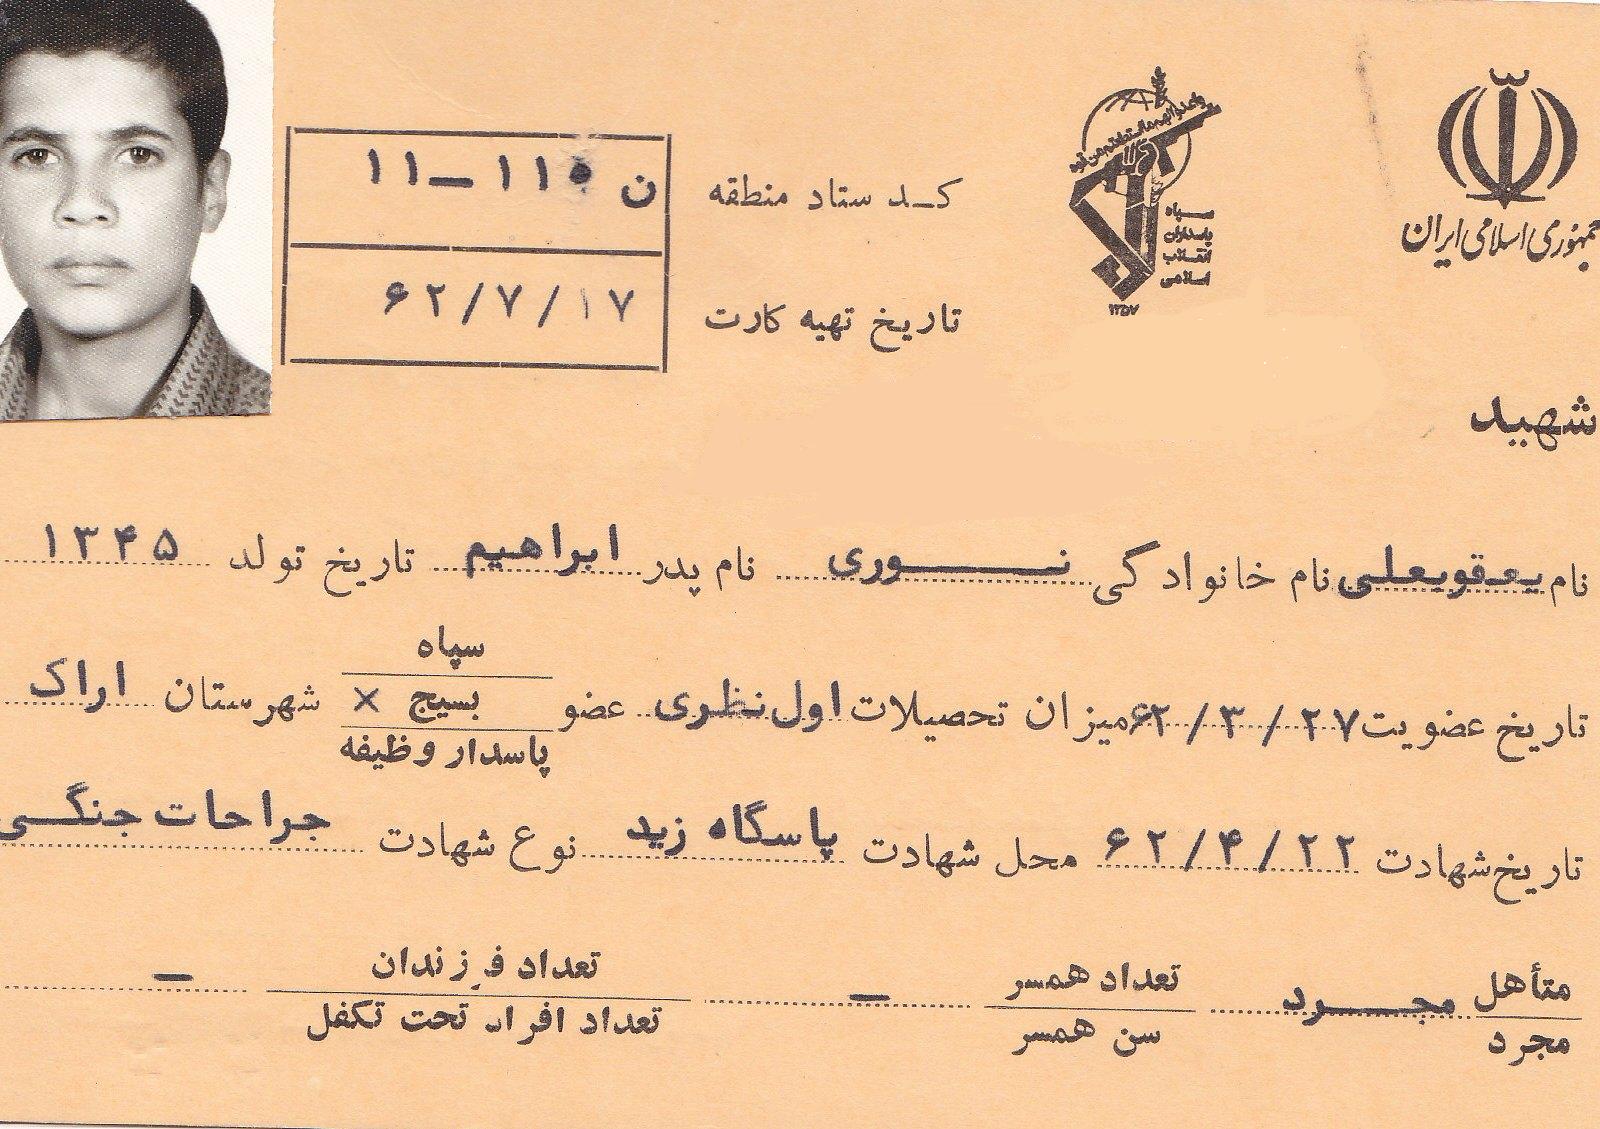 جمهوری اسلامی ایران
سپاه
پاسداران
انقلاب
اسلامی
۱۳۵۷
کد ستاد منطقه ن ۱۱۰ــ۱۱
تاریخ تهیه کارت ۶۲/۷/۱۷
شهید
نام یعقوبعلی نام خانوادگی نوری نام پدر ابراهیم تاریخ تولد ۱۳۴۵
تاریخ عضویت ۶۲/۳/۲۷ میزان تحصیلات اول نظری عضو سپاه
بسیج ×
پاسدار وظیفه
شهرستان اراک
تاریخ شهادت ۶۲/۴/۲۲ محل شهادت پاسگاه زید نوع شهادت جراحات جنگی
متأهل
مجرد
مجرد
تعداد همسر
سن همسر
ــ
تعداد فرزندان
تعداد افراد تحت تکفل
ــ